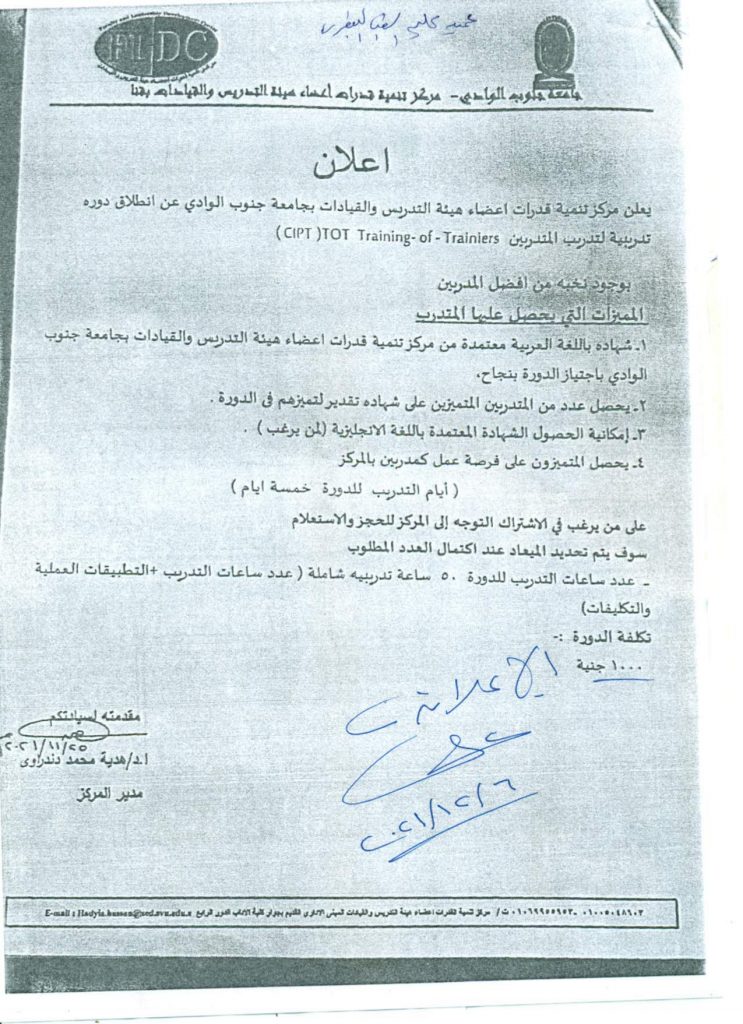 Faculty and Leadership Development Center
FLDC
عميد كلية الطب البيطري
جامعة جنوب الوادي - مركز تنمية قدرات أعضاء هيئة التدريس والقيادات بقنا
اعلان
يعلن مركز تنمية قدرات اعضاء هيئة التدريس والقيادات بجامعة جنوب الوادي عن انطلاق دوره
تدريبية لتدريب المتدربين CIPT )TOT Training- of - Trainiers )
بوجود نخبه من افضل المدربين
المميزات التي يحصل عليها المتدرب
١ـ شهاده باللغة العربية معتمدة من مركز تنمية قدرات اعضاء هيئة التدريس والقيادات بجامعة جنوب
الوادي باجتياز الدورة بنجاح.
٢ـ يحصل عدد من المتدربين المتميزين على شهاده تقدير لتميزهم فى الدورة .
٣ـ إمكانية الحصول الشهادة المعتمدة باللغة الانجليزية (لمن يرغب ) .
٤ـ يحصل المتميزون على فرصة عمل كمدربين بالمركز
( أيام التدريب للدورة خمسة ايام )
على من يرغب في الاشتراك التوجه إلى المركز للحجز والاستعلام
سوف يتم تحديد الميعاد عند اكتمال العدد المطلوب
ـ عدد ساعات التدريب للدورة ٥٠ ساعة تدريبيه شاملة ( عدد ساعات التدريب +التطبيقات العملية
والتكليفات)
تكلفة الدورة :-
١٠٠٠ جنية
الإعلانات
٢٠٢١/١٢/٦
مقدمته لسيادتكم
٢٠٢١/١١/٢٥
ا.د/هدية محمد دندراوى
مدير المركز
E-mail : Hadyia.hussen@sed.svu.edu.e مركز تنمية القدرات اعضاء هيئة التدريس والقيادات المبنى الادارى القديم بجوار كلية الاداب الدور الرابع ت/ ٠١٠٦٩٩٥٥٦٥٣ـ ٠١٠٠٥٠٤٨٦٠٣